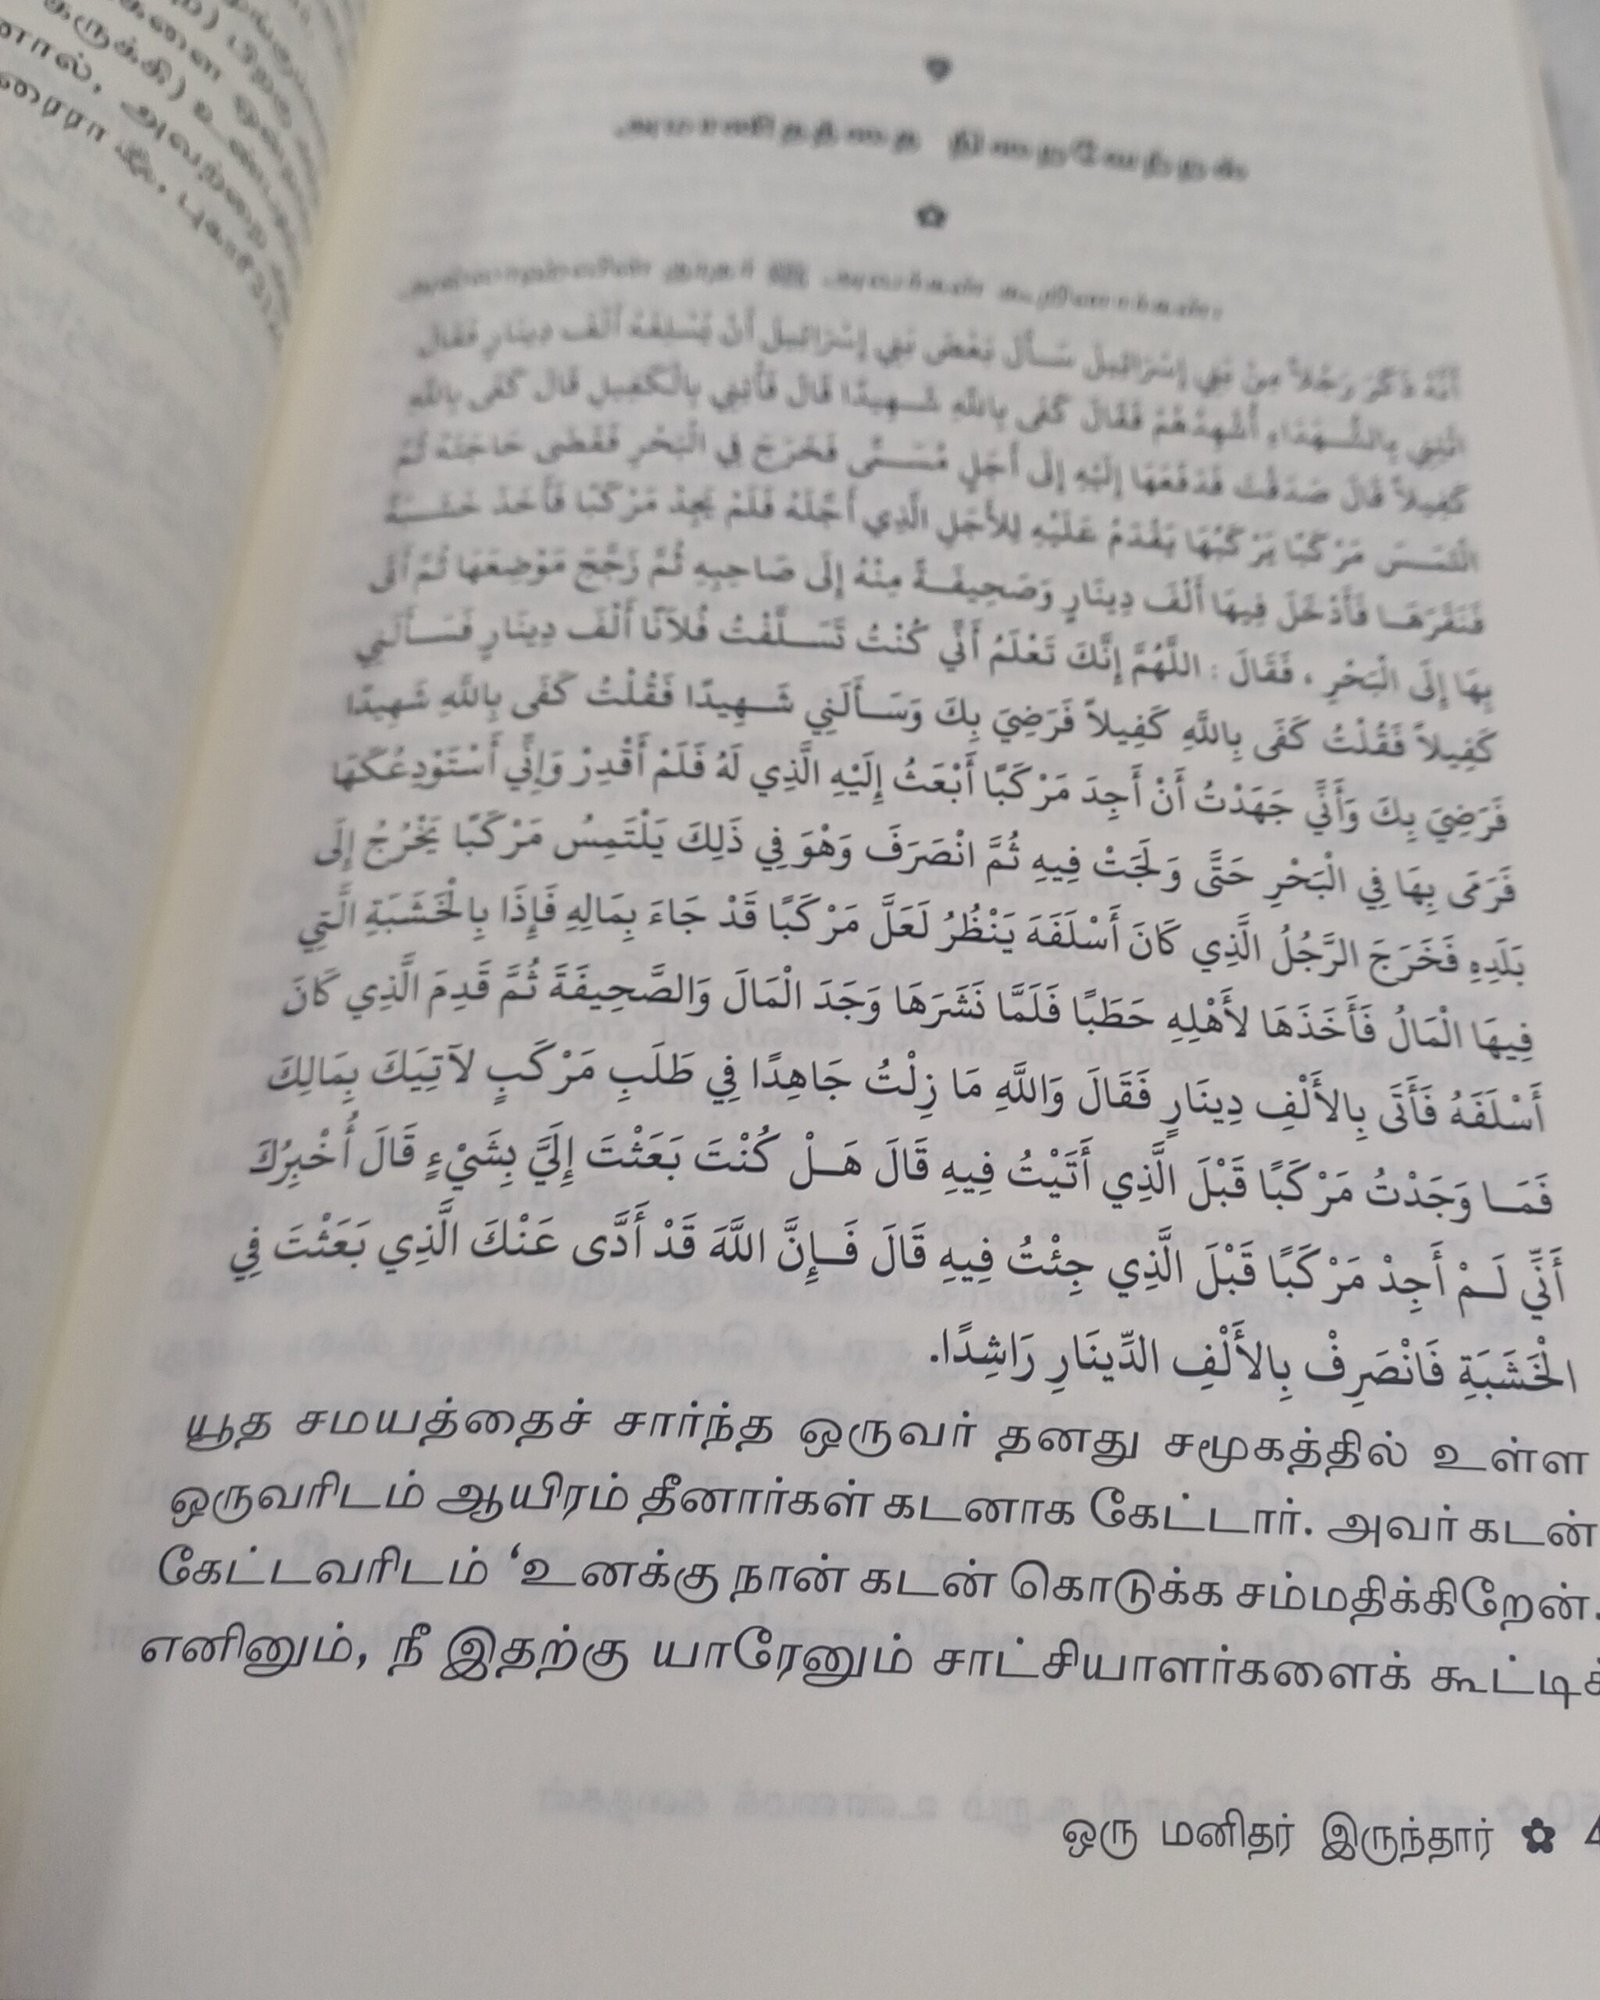 ௭
அமானிதத்தை நிறைவேற்றுதல்
அல்லாஹ்வின் தூதர் ﷺ அவர்கள் கூறினார்கள்:
أَنَّهُ ذَكَرَ رَجُلاً مِنْ بَنِي إِسْرَائِيلَ سَأَلَ بَعْضَ بَنِي إِسْرَائِيلَ أَنْ يُسْلِفَهُ أَلْفَ دِينَارٍ فَقَالَ
ائْتِنِي بِالشُّهَدَاءِ أُشْهِدُهُمْ فَقَالَ كَفَى بِاللَّهِ شَهِيدًا قَالَ فَأْتِنِي بِالْكَفِيلِ قَالَ كَفَى بِاللَّهِ
كَفِيلاً قَالَ صَدَقْتَ فَدَفَعَهَا إِلَيْهِ إِلَى أَجَلٍ مُسَمًّى فَخَرَجَ فِي الْبَحْرِ فَقَضَى حَاجَتَهُ ثُمَّ
الْتَمَسَ مَرْكَبًا يَرْكَبُهَا يَقْدَمُ عَلَيْهِ لِلأَجَلِ الَّذِي أَجَّلَهُ فَلَمْ يَجِدْ مَرْكَبًا فَأَخَذَ خَشَبَةً
فَنَقَرَهَا فَأَدْخَلَ فِيهَا أَلْفَ دِينَارٍ وَصَحِيفَةً مِنْهُ إِلَى صَاحِبِهِ ثُمَّ زَجَّجَ مَوْضِعَهَا ثُمَّ أَتَى
بِهَا إِلَى الْبَحْرِ ، فَقَالَ : اللَّهُمَّ إِنَّكَ تَعْلَمُ أَنِّي كُنْتُ تَسَلَّفْتُ فُلاَنًا أَلْفَ دِينَارٍ فَسَأَلَنِي
كَفِيلاً فَقُلْتُ كَفَى بِاللَّهِ كَفِيلاً فَرَضِيَ بِكَ وَسَأَلَنِي شَهِيدًا فَقُلْتُ كَفَى بِاللَّهِ شَهِيدًا
فَرَضِيَ بِكَ وَأَنِّي جَهَدْتُ أَنْ أَجِدَ مَرْكَبًا أَبْعَثُ إِلَيْهِ الَّذِي لَهُ فَلَمْ أَقْدِرْ وَإِنِّي أَسْتَوْدِعُكَهَا
فَرَمَى بِهَا فِي الْبَحْرِ حَتَّى وَلَجَتْ فِيهِ ثُمَّ انْصَرَفَ وَهْوَ فِي ذَلِكَ يَلْتَمِسُ مَرْكَبًا يَخْرُجُ إِلَى
بَلَدِهِ فَخَرَجَ الرَّجُلُ الَّذِي كَانَ أَسْلَفَهُ يَنْظُرُ لَعَلَّ مَرْكَبًا قَدْ جَاءَ بِمَالِهِ فَإِذَا بِالْخَشَبَةِ الَّتِي
فِيهَا الْمَالُ فَأَخَذَهَا لأَهْلِهِ حَطَبًا فَلَمَّا نَشَرَهَا وَجَدَ الْمَالَ وَالصَّحِيفَةَ ثُمَّ قَدِمَ الَّذِي كَانَ
أَسْلَفَهُ فَأَتَى بِالأَلْفِ دِينَارٍ فَقَالَ وَاللَّهِ مَا زِلْتُ جَاهِدًا فِي طَلَبِ مَرْكَبٍ لآتِيَكَ بِمَالِكَ
فَمَا وَجَدْتُ مَرْكَبًا قَبْلَ الَّذِي أَتَيْتُ فِيهِ قَالَ هَلْ كُنْتَ بَعَثْتَ إِلَيَّ بِشَيْءٍ قَالَ أُخْبِرُكَ
أَنِّي لَمْ أَجِدْ مَرْكَبًا قَبْلَ الَّذِي جِئْتُ فِيهِ قَالَ فَإِنَّ اللَّهَ قَدْ أَدَّى عَنْكَ الَّذِي بَعَثْتَ فِي
الْخَشَبَةِ فَانْصَرِفْ بِالأَلْفِ الدِّينَارِ رَاشِدًا.
யூத சமயத்தைச் சார்ந்த ஒருவர் தனது சமூகத்தில் உள்ள
ஒருவரிடம் ஆயிரம் தீனார்கள் கடனாக கேட்டார். அவர் கடன்
கேட்டவரிடம் ‘உனக்கு நான் கடன் கொடுக்க சம்மதிக்கிறேன்.
எனினும், நீ இதற்கு யாரேனும் சாட்சியாளர்களைக் கூட்டிக்
ஒரு மனிதர் இருந்தார் ✿ 4